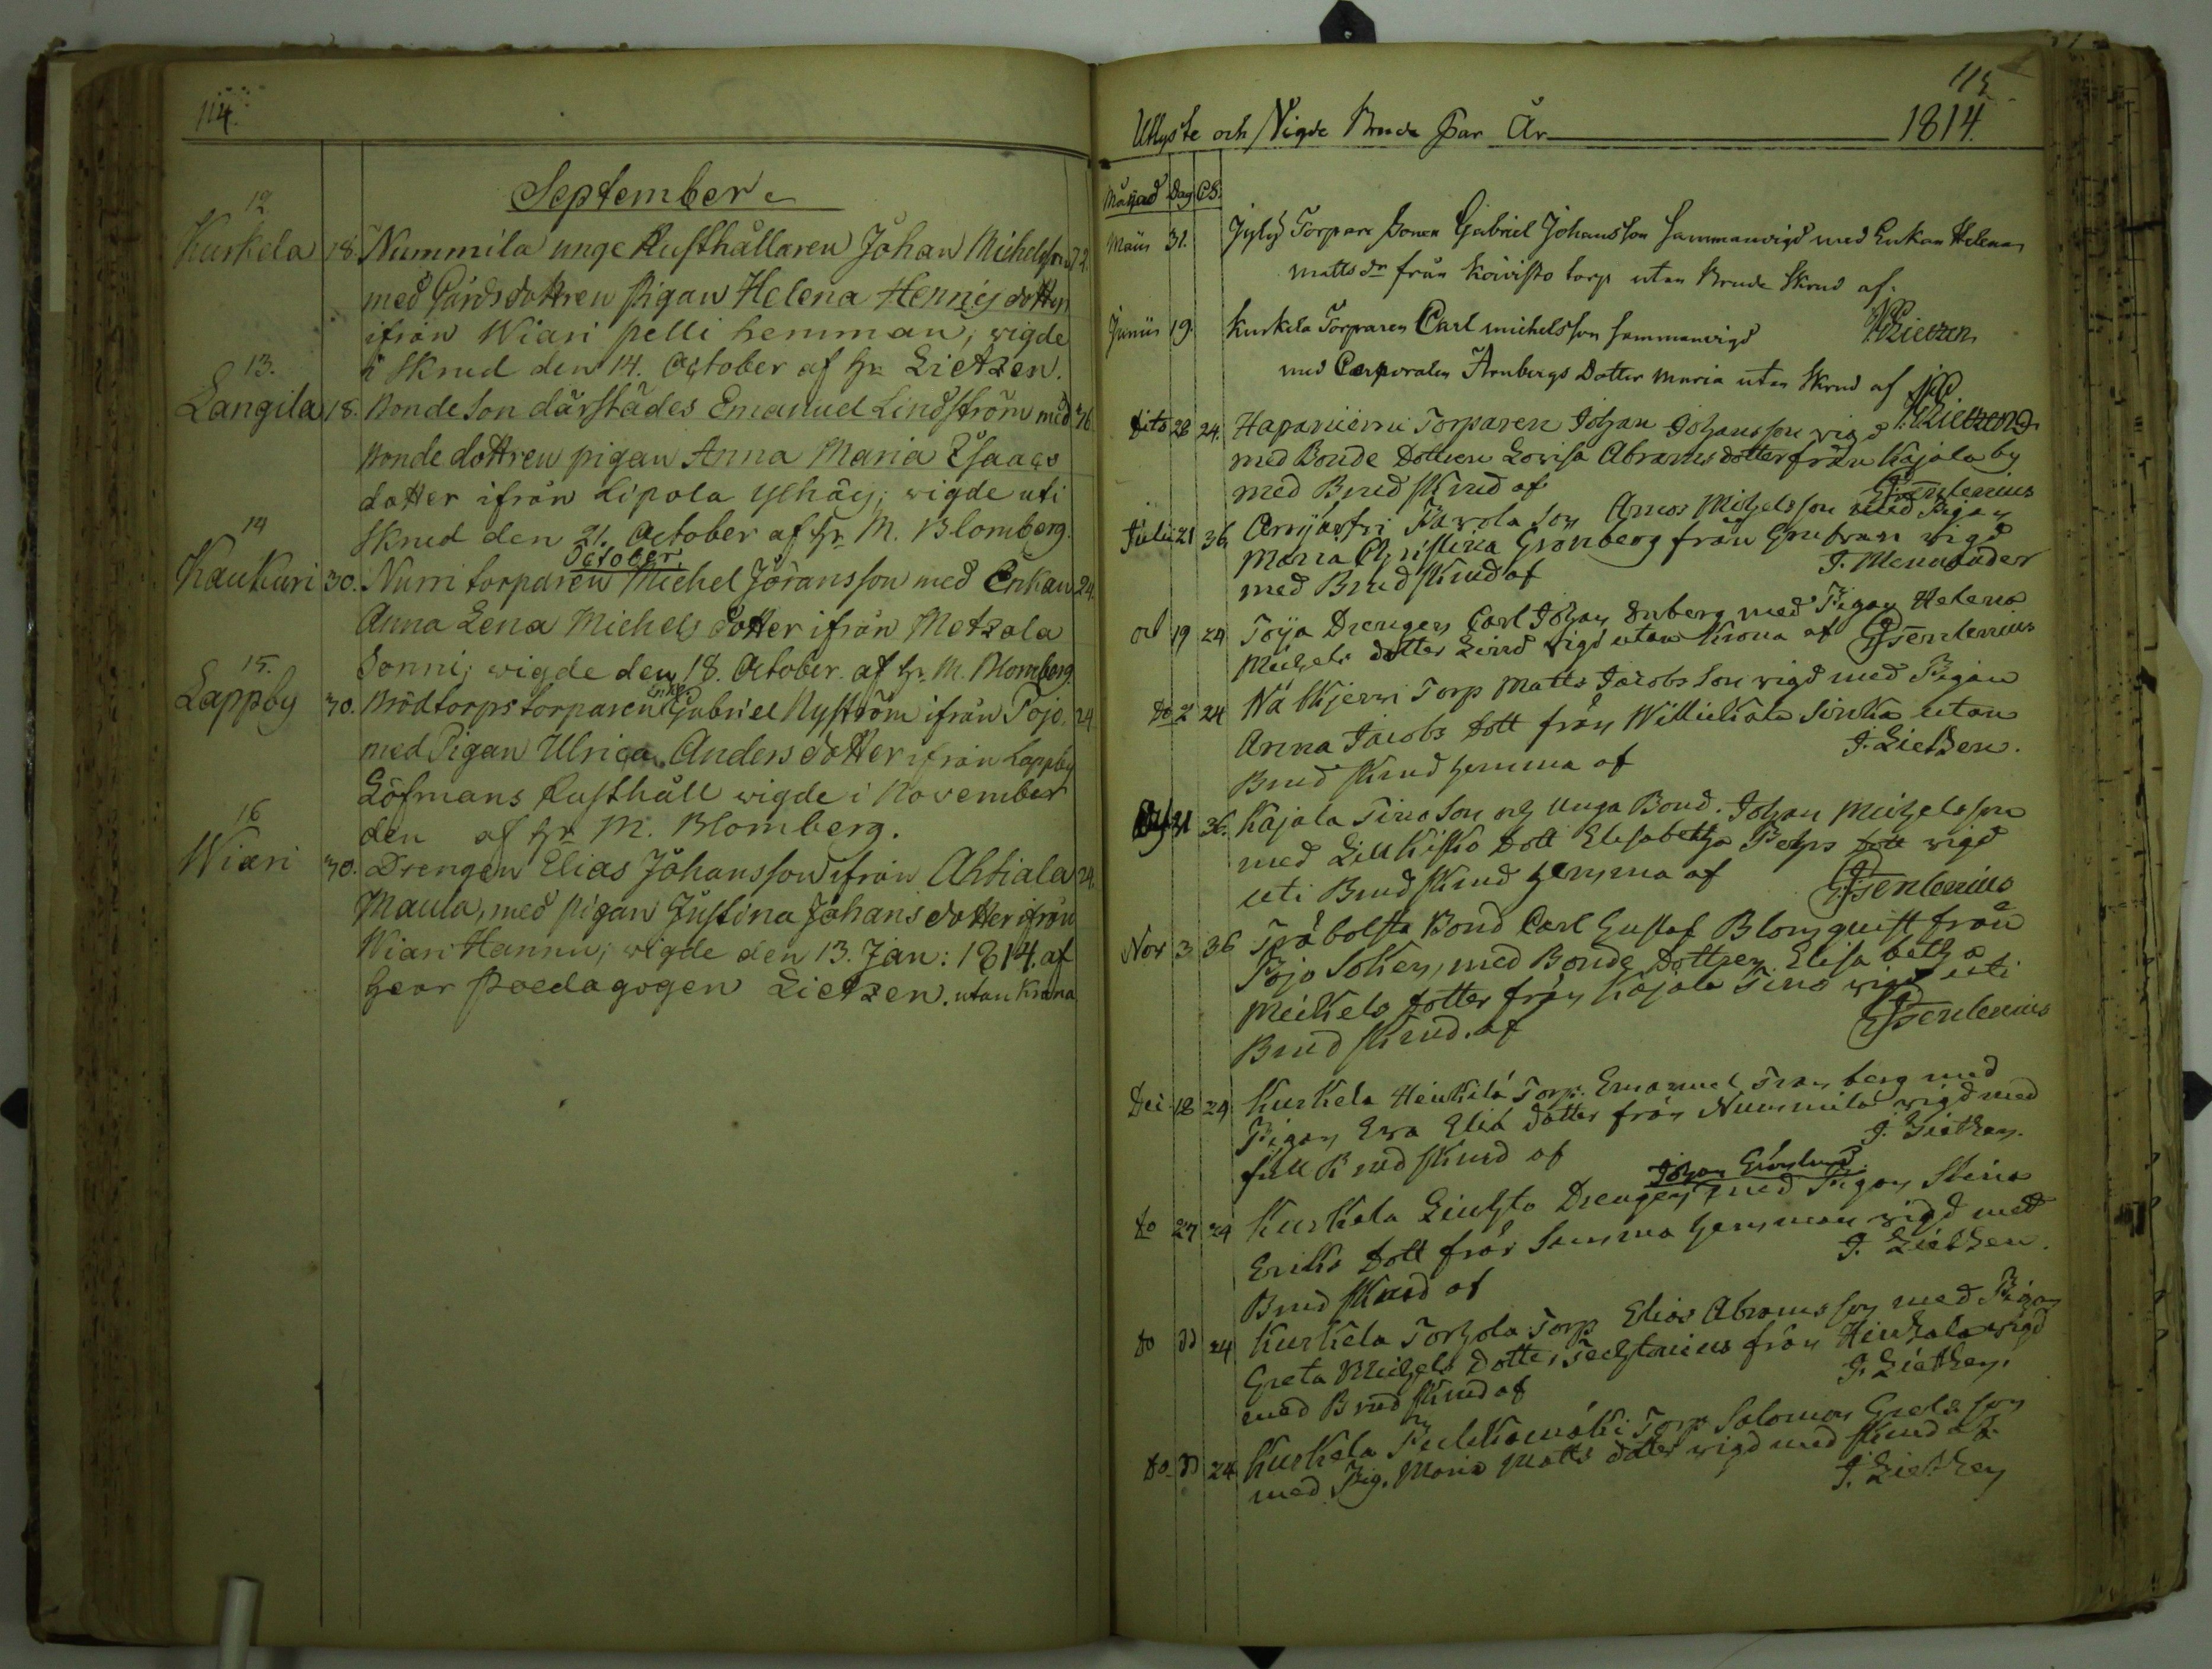 114.
September
12
Kurkela 18. Nummila unge Rusthållaren Johan Michelsson 72.
med Gårdsdottren pigan Helena Henricsdotter
ifrån Wiari pelli hemman, wigde
i skrud den 14. October af hr Lietzen.
13.
Langila 18. Bonde Son därstädes Emanuel Lindström med 36
Bonde dottren pigan Anna Maria Isaacs
dotter ifrån Lipola ylhäis, wigde uti
skrud den 21. October af hr M. Blomberg.
October.
14
Kaukuri 30. Nurri torparen Michel Jöransson med Enkan 24.
Anna Lena Michels dotter ifrån Metzola
Sonni; wigde den 18. October af hr M. Blomberg.
15.
Lappby 30. Brödtorps torparen Enkl. Gabriel Nyström ifrån Pojo, 24
med Pigan Ulrica Anders dotter ifrån Lappby
Löfmans Rusthåll wigde i November
den af hr M. Blomberg.
16
Wiari 30. Drengen Elias Johansson ifrån Ahtiala 24.
Maula, med pigan Justina Johans dotter ifrån
Wiari Hannu; wigde den 13. Jan: 1814. af
herr Paedagogen Lietzen. utan Krona
115
Utlyste och Vigde Brude Par År 1814.
Månad Dag
Maius 31. Torpare Sonen Gabriel Johansson sammanvigd med Enkan Helena
Matts dr från Koivisto torp utan Brude Skrud af.
Lietzen
Junius 19. Kurkela Torparen Carl Michelsson sammanvigd
med Corporalen Arnbergs Dotter Maria utan Skrud af
Lietzen
dito 26 24. Haparniemi Torparen Johan Johansson vigd
med Bonde Dottren Lovisa Abramsdotter från Kajala by
med Brud skrud af
Juli 21 36 Pavola Son Amos Michelsson med Pigan
Maria Christina Grönberg från vigd
med Brud skrud af J. Menander
oct 19 24 Toija Drengen Carl Johan Enberg med Pigan Helena
Michels dotter Lind vigd utan Krona af
Do 2 24 Torp Matts Jacobs Son vigd med Pigan
Anna Jacobs Dott från utan
Brud skrud hemma af J. Lietzen.
31 36. Kajala Tino Son och Unga Bond. Johan Michelsson
med Dott Elisabetha vigd
uti Brud skrud hemma af
Nov 3 36 Bond Carl Gustaf Blomquist från
Pojo Soken, med Bonde Dottren Elisabetha
Mickels dotter från Kajala Tino vigd uti
Brud skrud. af
Dec 18 24 Kurkela Heikilä Torp. Emanuel med
Pigan Eva Elia dotter från Nummila vigd med
full Brud skrud af J. Lietzen.
Do 27 24 Kurkela Drengen Johan med Pigan Stina
Eriks Dott från hemman vigd med
Brud skrud af J. Lietzen.
Do 24 Kurkela Torp Elias Abramsson med Pigan
Greta Michels dotter från vigd
med Brud skrud af J. Lietzen.
Do 24 Kurkela Torp Salomon
med Pig. Maria Matts dotter vigd med skrud af
J. Lietzen